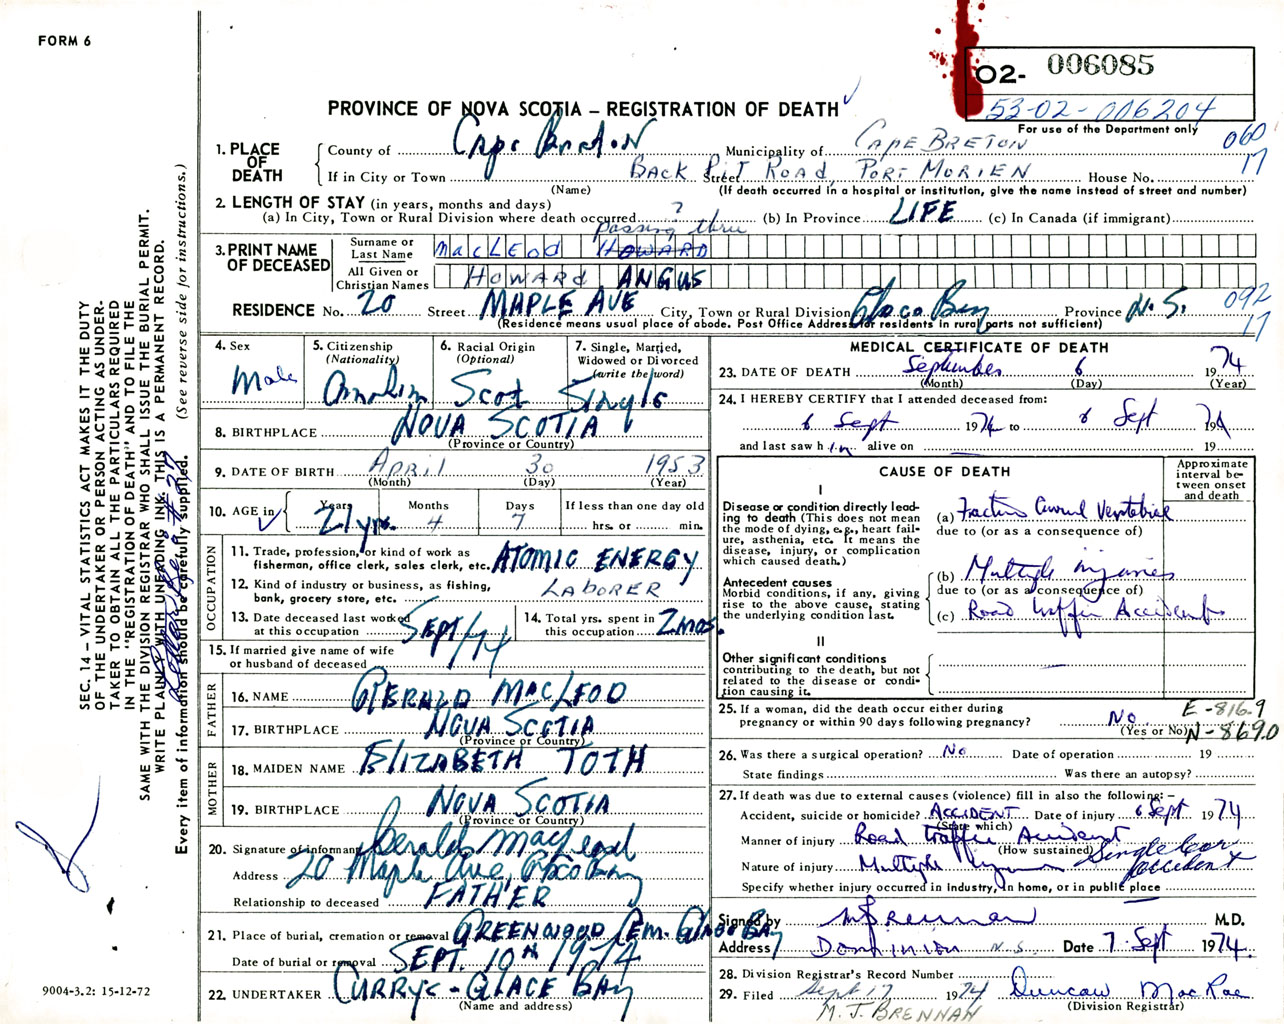 FORM 6
O2- 006085
53-02-006204
For use of the Department only
PROVINCE OF NOVA SCOTIA – REGISTRATION OF DEATH
060
17
1. PLACE OF DEATH
County of Cape Breton Municipality of CAPE BRETON
If in City or Town BACK PIT ROAD PORT MORIEN Street House No.
(Name) (If death occurred in a hospital or institution, give the name instead of street and number)
2. LENGTH OF STAY (in years, months and days)
(a) In City, Town or Rural Division where death occurred ? (b) In Province LIFE (c) In Canada (if immigrant)
passing thru
3. PRINT NAME OF DECEASED
Surname or Last Name MacLEOD HOWARD
All Given or Christian Names HOWARD ANGUS
RESIDENCE No. 20 Street MAPLE AVE City, Town or Rural Division Glace Bay Province N.S.
092
17
(Residence means usual place of abode. Post Office Address for residents in rural parts not sufficient)
4. Sex
Male
5. Citizenship (Nationality)
Canadian
6. Racial Origin (Optional)
Scot
7. Single, Married, Widowed or Divorced (write the word)
Single
8. BIRTHPLACE NOVA SCOTIA
(Province or Country)
9. DATE OF BIRTH APRIL 30 1953
(Month) (Day) (Year)
10. AGE in Years Months Days If less than one day old
21 yrs. 4 7 hrs. or min.
OCCUPATION
11. Trade, profession, or kind of work as fisherman, office clerk, sales clerk, etc. ATOMIC ENERGY
12. Kind of industry or business, as fishing, bank, grocery store, etc. LABORER
13. Date deceased last worked at this occupation SEPT/74
14. Total yrs. spent in this occupation 2 mos.
15. If married give name of wife or husband of deceased
FATHER
16. NAME GERALD MACLEOD
17. BIRTHPLACE NOVA SCOTIA
(Province or Country)
MOTHER
18. MAIDEN NAME ELIZABETH TOTH
19. BIRTHPLACE NOVA SCOTIA
(Province or Country)
20. Signature of informant Gerald MacLeod
Address 20 Maple Ave, Glace Bay
Relationship to deceased FATHER
21. Place of burial, cremation or removal GREENWOOD CEM. GLACE BAY
Date of burial or removal SEPT. 10TH 1974
22. UNDERTAKER CURRYS - GLACE BAY
(Name and address)
MEDICAL CERTIFICATE OF DEATH
23. DATE OF DEATH September 6 1974
(Month) (Day) (Year)
24. I HEREBY CERTIFY that I attended deceased from:
6 Sept 1974 to 6 Sept 1974
and last saw h im alive on 19
CAUSE OF DEATH
Approximate interval between onset and death
I
Disease or condition directly leading to death (This does not mean the mode of dying, e.g., heart failure, asthenia, etc. It means the disease, injury, or complication which caused death.)
(a) Fracture Cervical Vertebrae
due to (or as a consequence of)
Antecedent causes
Morbid conditions, if any, giving rise to the above cause, stating the underlying condition last.
(b) Multiple injuries
due to (or as a consequence of)
(c) Road traffic Accidents
II
Other significant conditions contributing to the death, but not related to the disease or condition causing it.
25. If a woman, did the death occur either during pregnancy or within 90 days following pregnancy? No
(Yes or No)
E-816.9
N-869.0
26. Was there a surgical operation? No Date of operation 19
State findings Was there an autopsy?
27. If death was due to external causes (violence) fill in also the following:–
Accident, suicide or homicide? ACCIDENT Date of injury 6 Sept 1974
(State which)
Manner of injury Road traffic Accident
(How sustained)
Single Car Accident
Nature of injury Multiple injuries
Specify whether injury occurred in industry, in home, or in public place
Signed by MJBrennan M.D.
Address DOMINION N.S. Date 7 Sept 1974.
28. Division Registrar's Record Number
29. Filed Sept 17 1974 Duncan MacRae
(Division Registrar)
M. J. BRENNAN
SEC. 14 – VITAL STATISTICS ACT MAKES IT THE DUTY
OF THE UNDERTAKER OR PERSON ACTING AS UNDER-
TAKER TO OBTAIN ALL THE PARTICULARS REQUIRED
IN THE "REGISTRATION OF DEATH" AND TO FILE THE
SAME WITH THE DIVISION REGISTRAR WHO SHALL ISSUE THE BURIAL PERMIT.
WRITE PLAINLY WITH UNFADING INK. THIS IS A PERMANENT RECORD.
Every item of information should be carefully supplied. (See reverse side for instructions.)
9004-3.2: 15-12-72